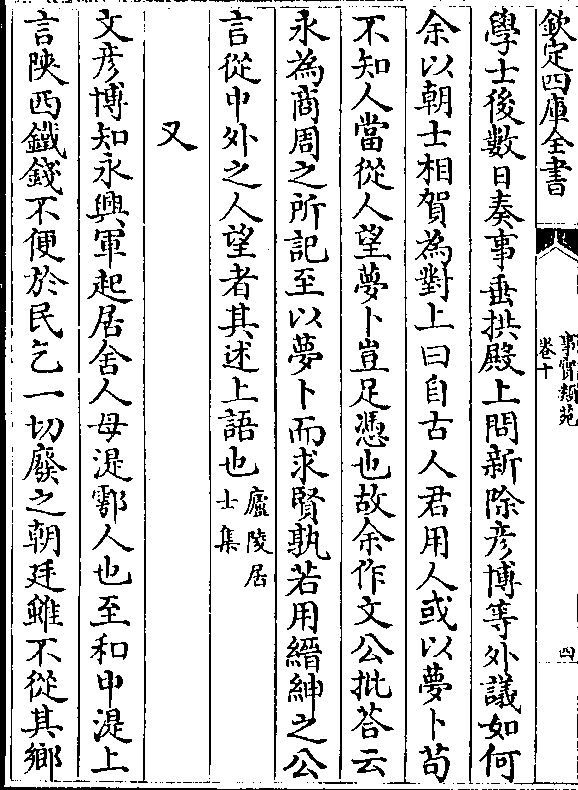 欽定四庫全書
事實類苑
卷十
四
學士後數日奏事垂拱殿上問新除彦博等外議如何
余以朝士相賀為對上曰自古人君用人或以夢卜苟
不知人當從人望夢卜豈足憑也故余作文公批荅云
永為商周之所記至以夢卜而求賢孰若用縉紳之公
言從中外之人望者其述上語也廬陵居士集
又
文彦博知永興軍起居舍人母湜鄠人也至和中湜上
言陜西鐵錢不便於民乞一切廢之朝廷雖不從其鄉